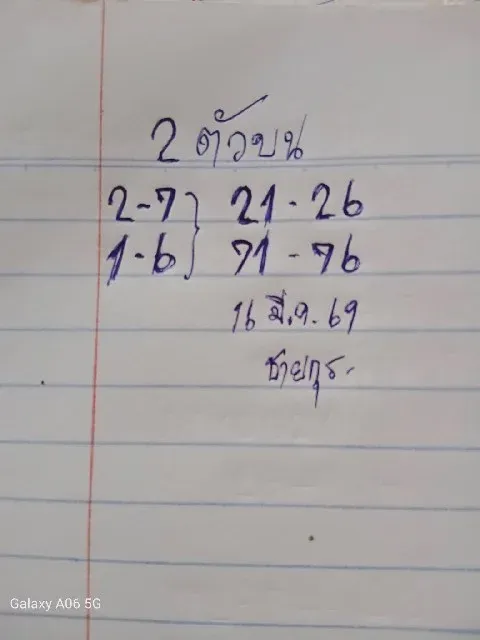 2 ตัวบน
2-7 } 21 - 26
1-6 } 71 - 76
16 มี.ค. 69
Galaxy A06 5G